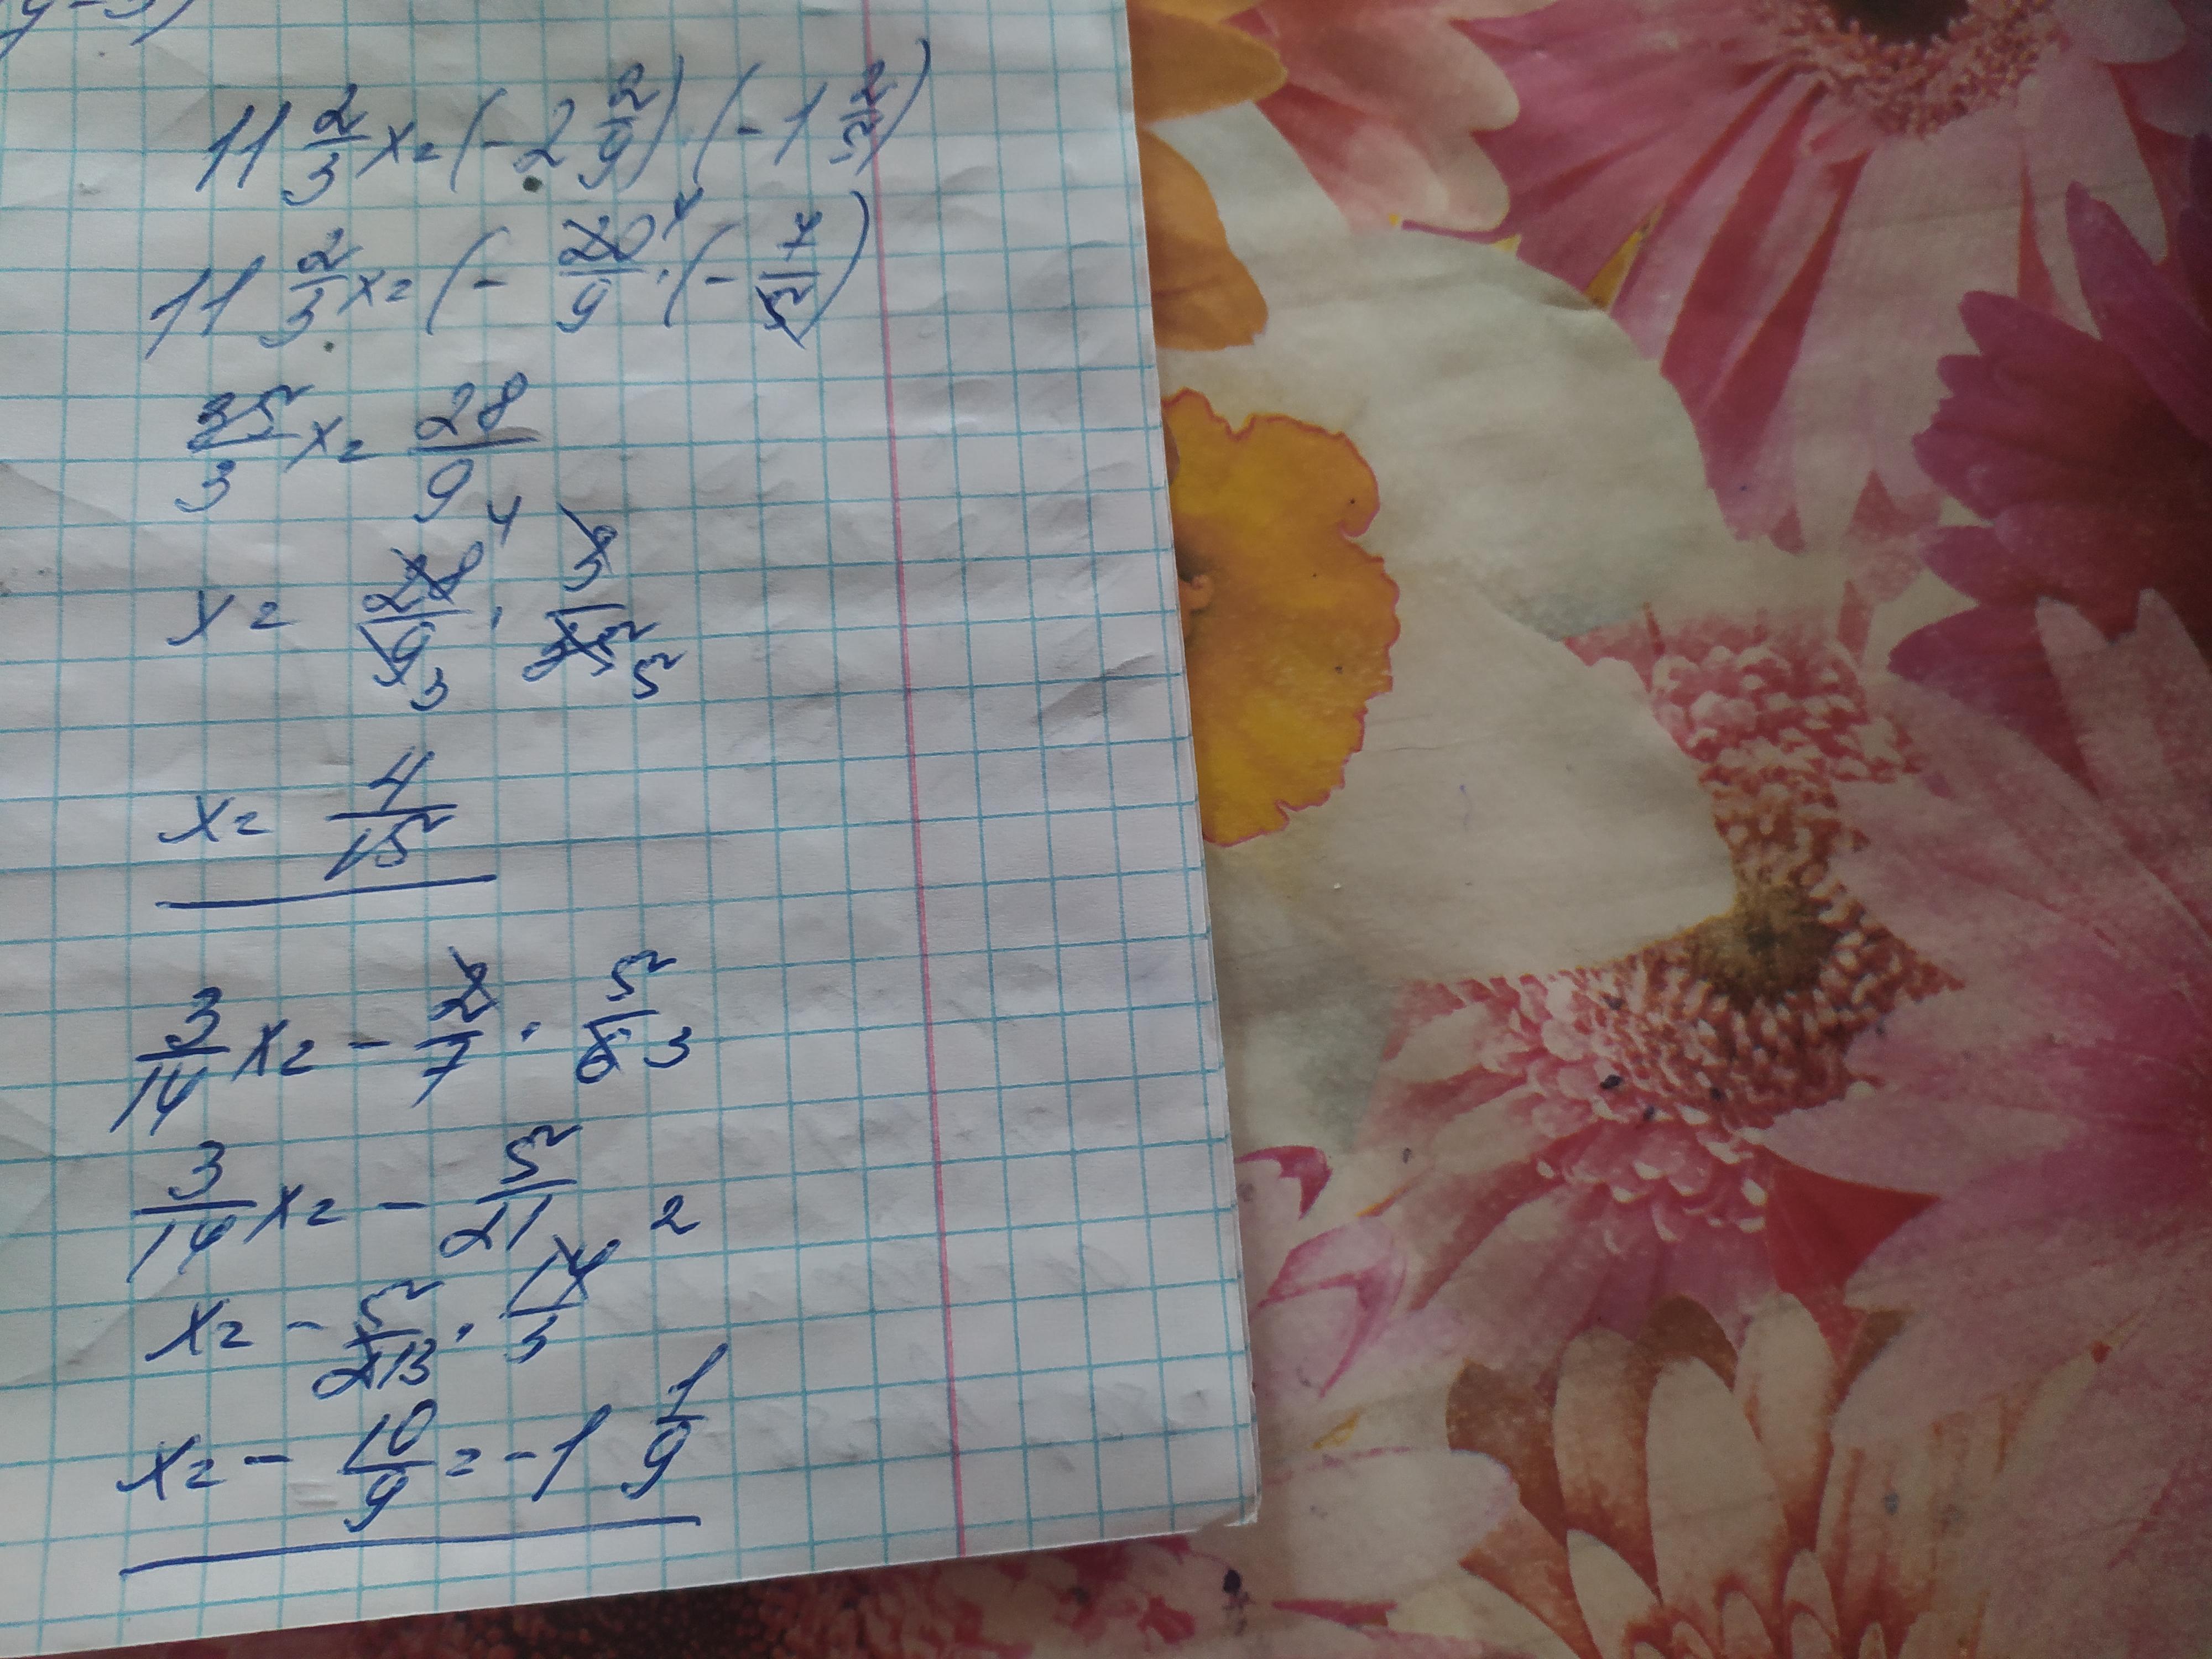 y-3)
11 2/3 x = (-2 2/9) · (-1 2/5)
11 2/3 x = (- 20/9 4 · (- 7/5)
35/3 x = 28/9
x = 28/9 4 3 · 3/35 5
x = 4/15
3/14 x = - 2/7 · 5/6 3
3/14 x = - 5/21
x = - 5/21 3 · 14/3 2
x = - 10/9 = -1 1/9